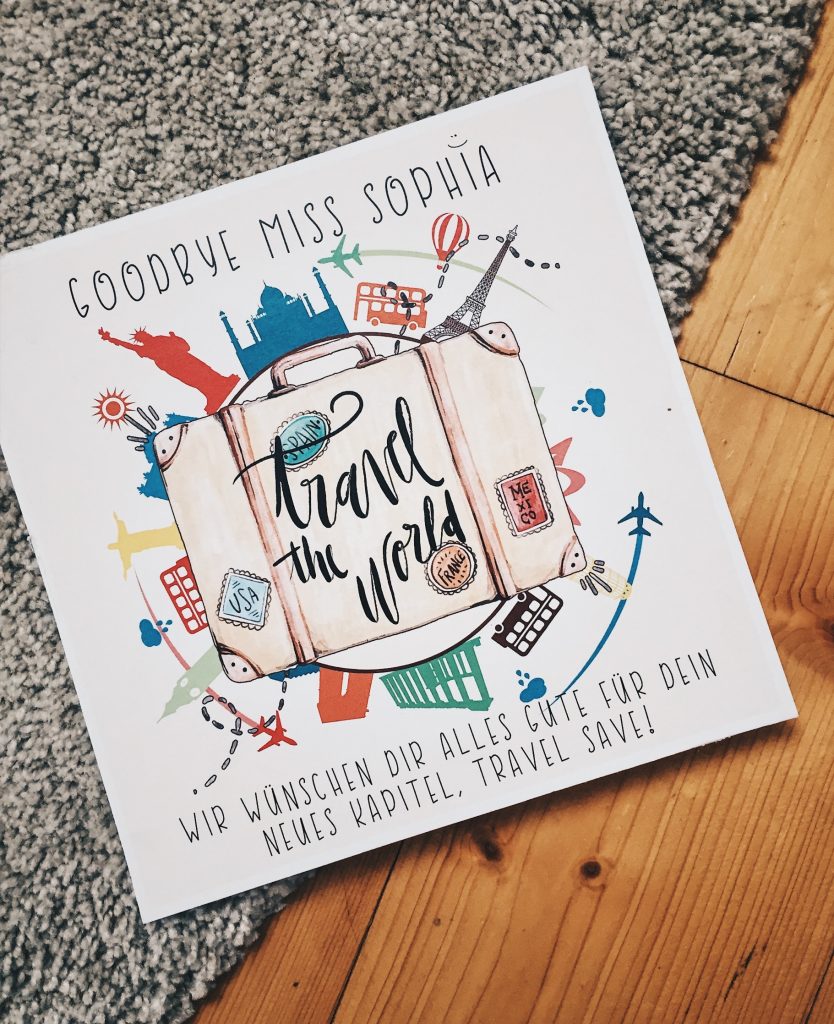 GOODBYE MISS SOPHIA
SPAIN
travel
the World
MEXICO
FRANCE
USA
WIR WÜNSCHEN DIR ALLES GUTE FÜR DEIN
NEUES KAPITEL, TRAVEL SAVE!